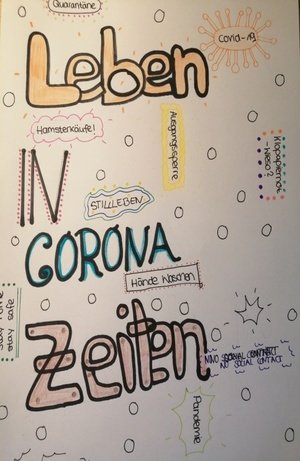 Quarantäne
Covid-19
Leben
Hamsterkäufe!
Ausgangssperre
Klopapiernot
- Wieso?
IN
STILLEBEN
CORONA
Hände Waschen
stay safe
Zeiten
NO SOCIAL CONTACT
Pandemie